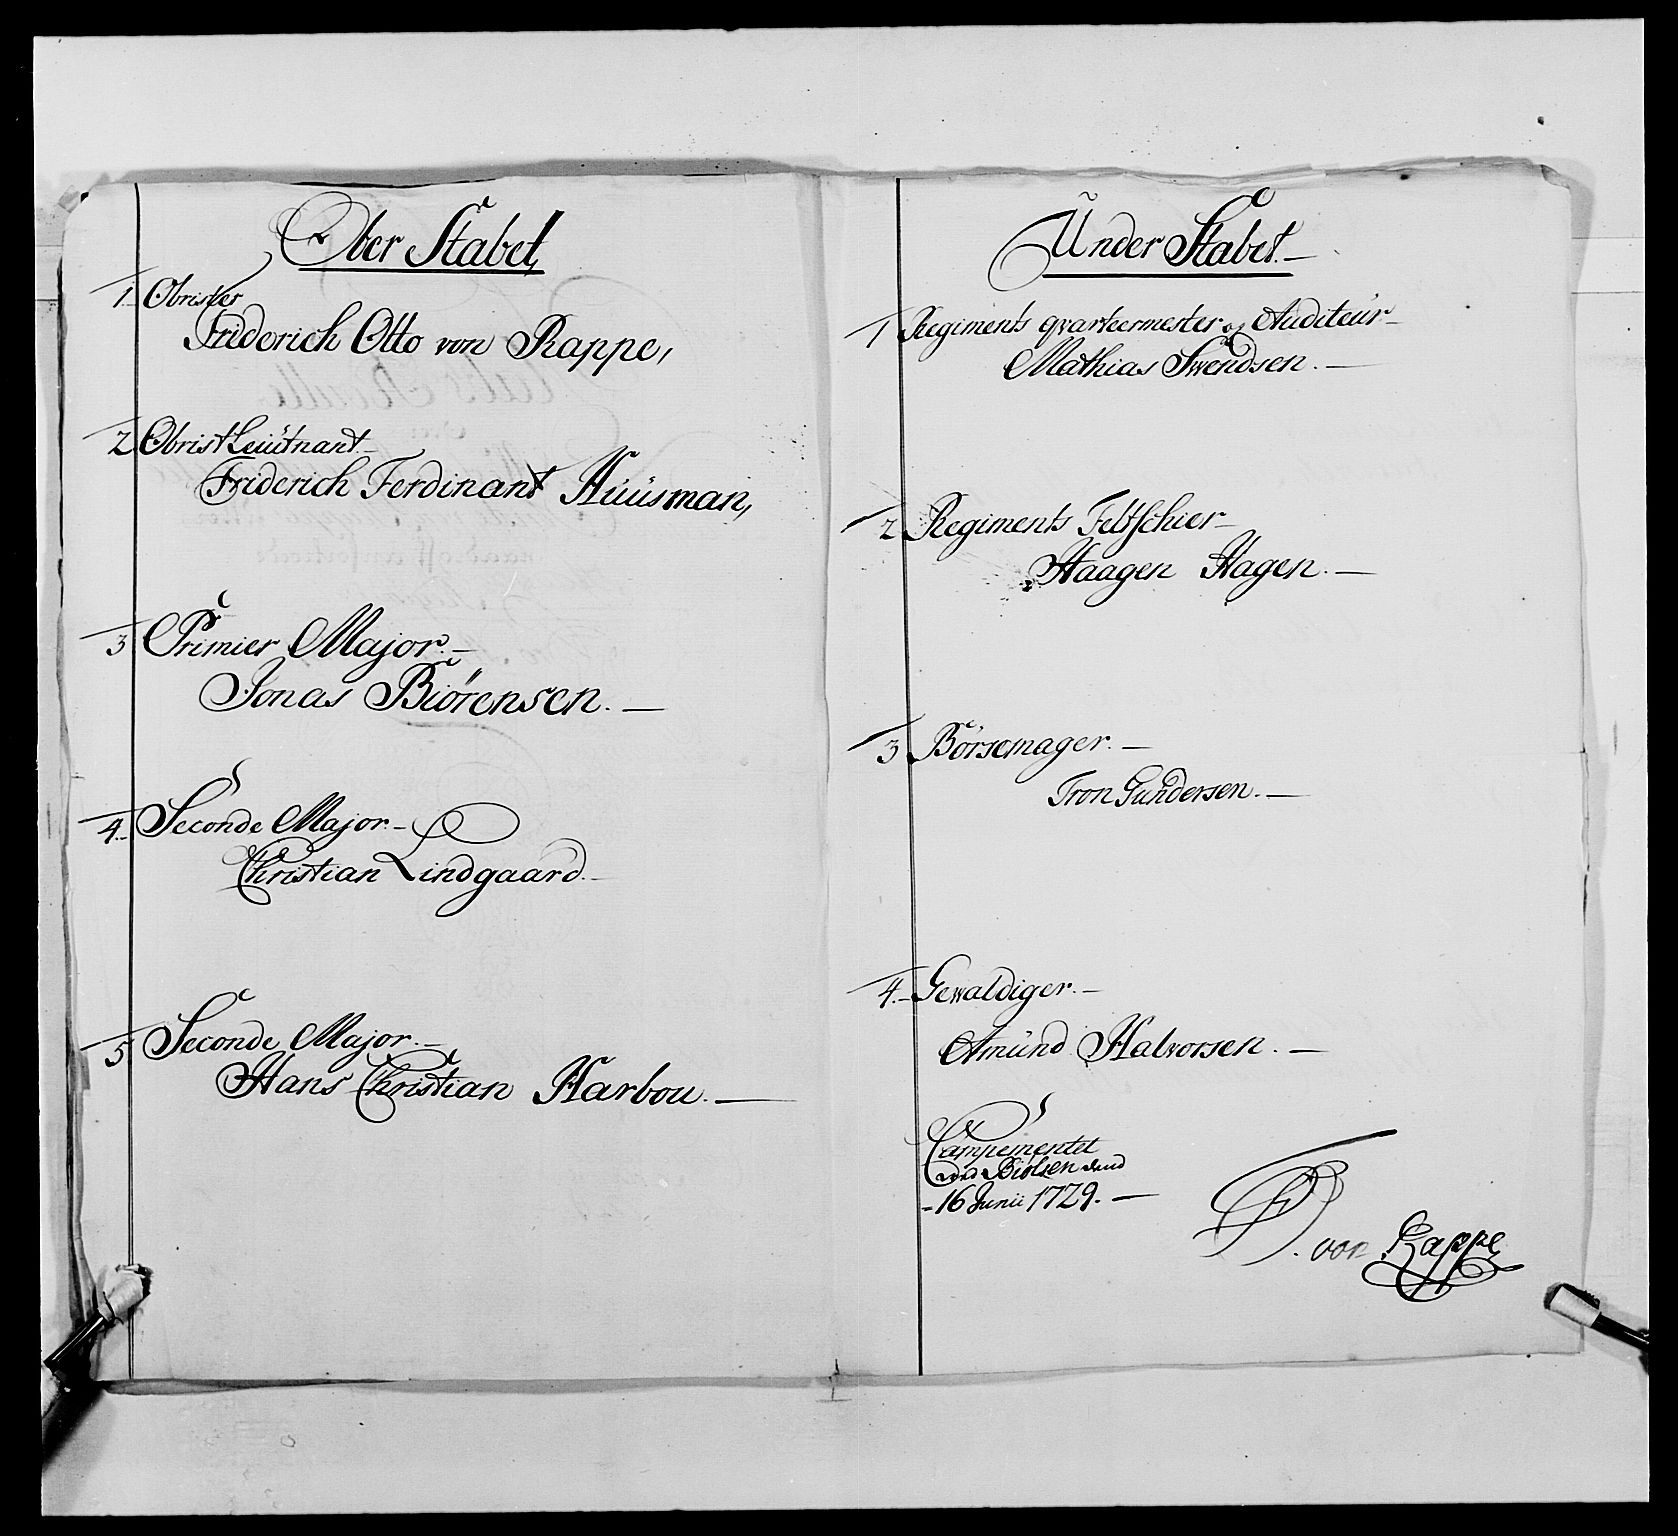 Ober Stabet,
1. Obrister
Friderich Otto von Rappe,
2 Obrist Leiütnant
Friderich Ferdinant Huüsman,
3 Primier Major.
Jonas Biörensen.
4. Seconde Major.
Christian Lindgaard.
5 Seconde Major.
Hans Christian Harbou.
Under Stabet.
1 Regiments qvarteermester og Auditeür
Mathias Swendsen.
2 Regiments Feltschier
Haagen Hagen.
3 Börsemager.
Tron Gundersen.
4. Gewaldiger.
Amünd Halvorsen.
Campementet
ved Biölsen dend
16 Junii 1729.
von Rappe